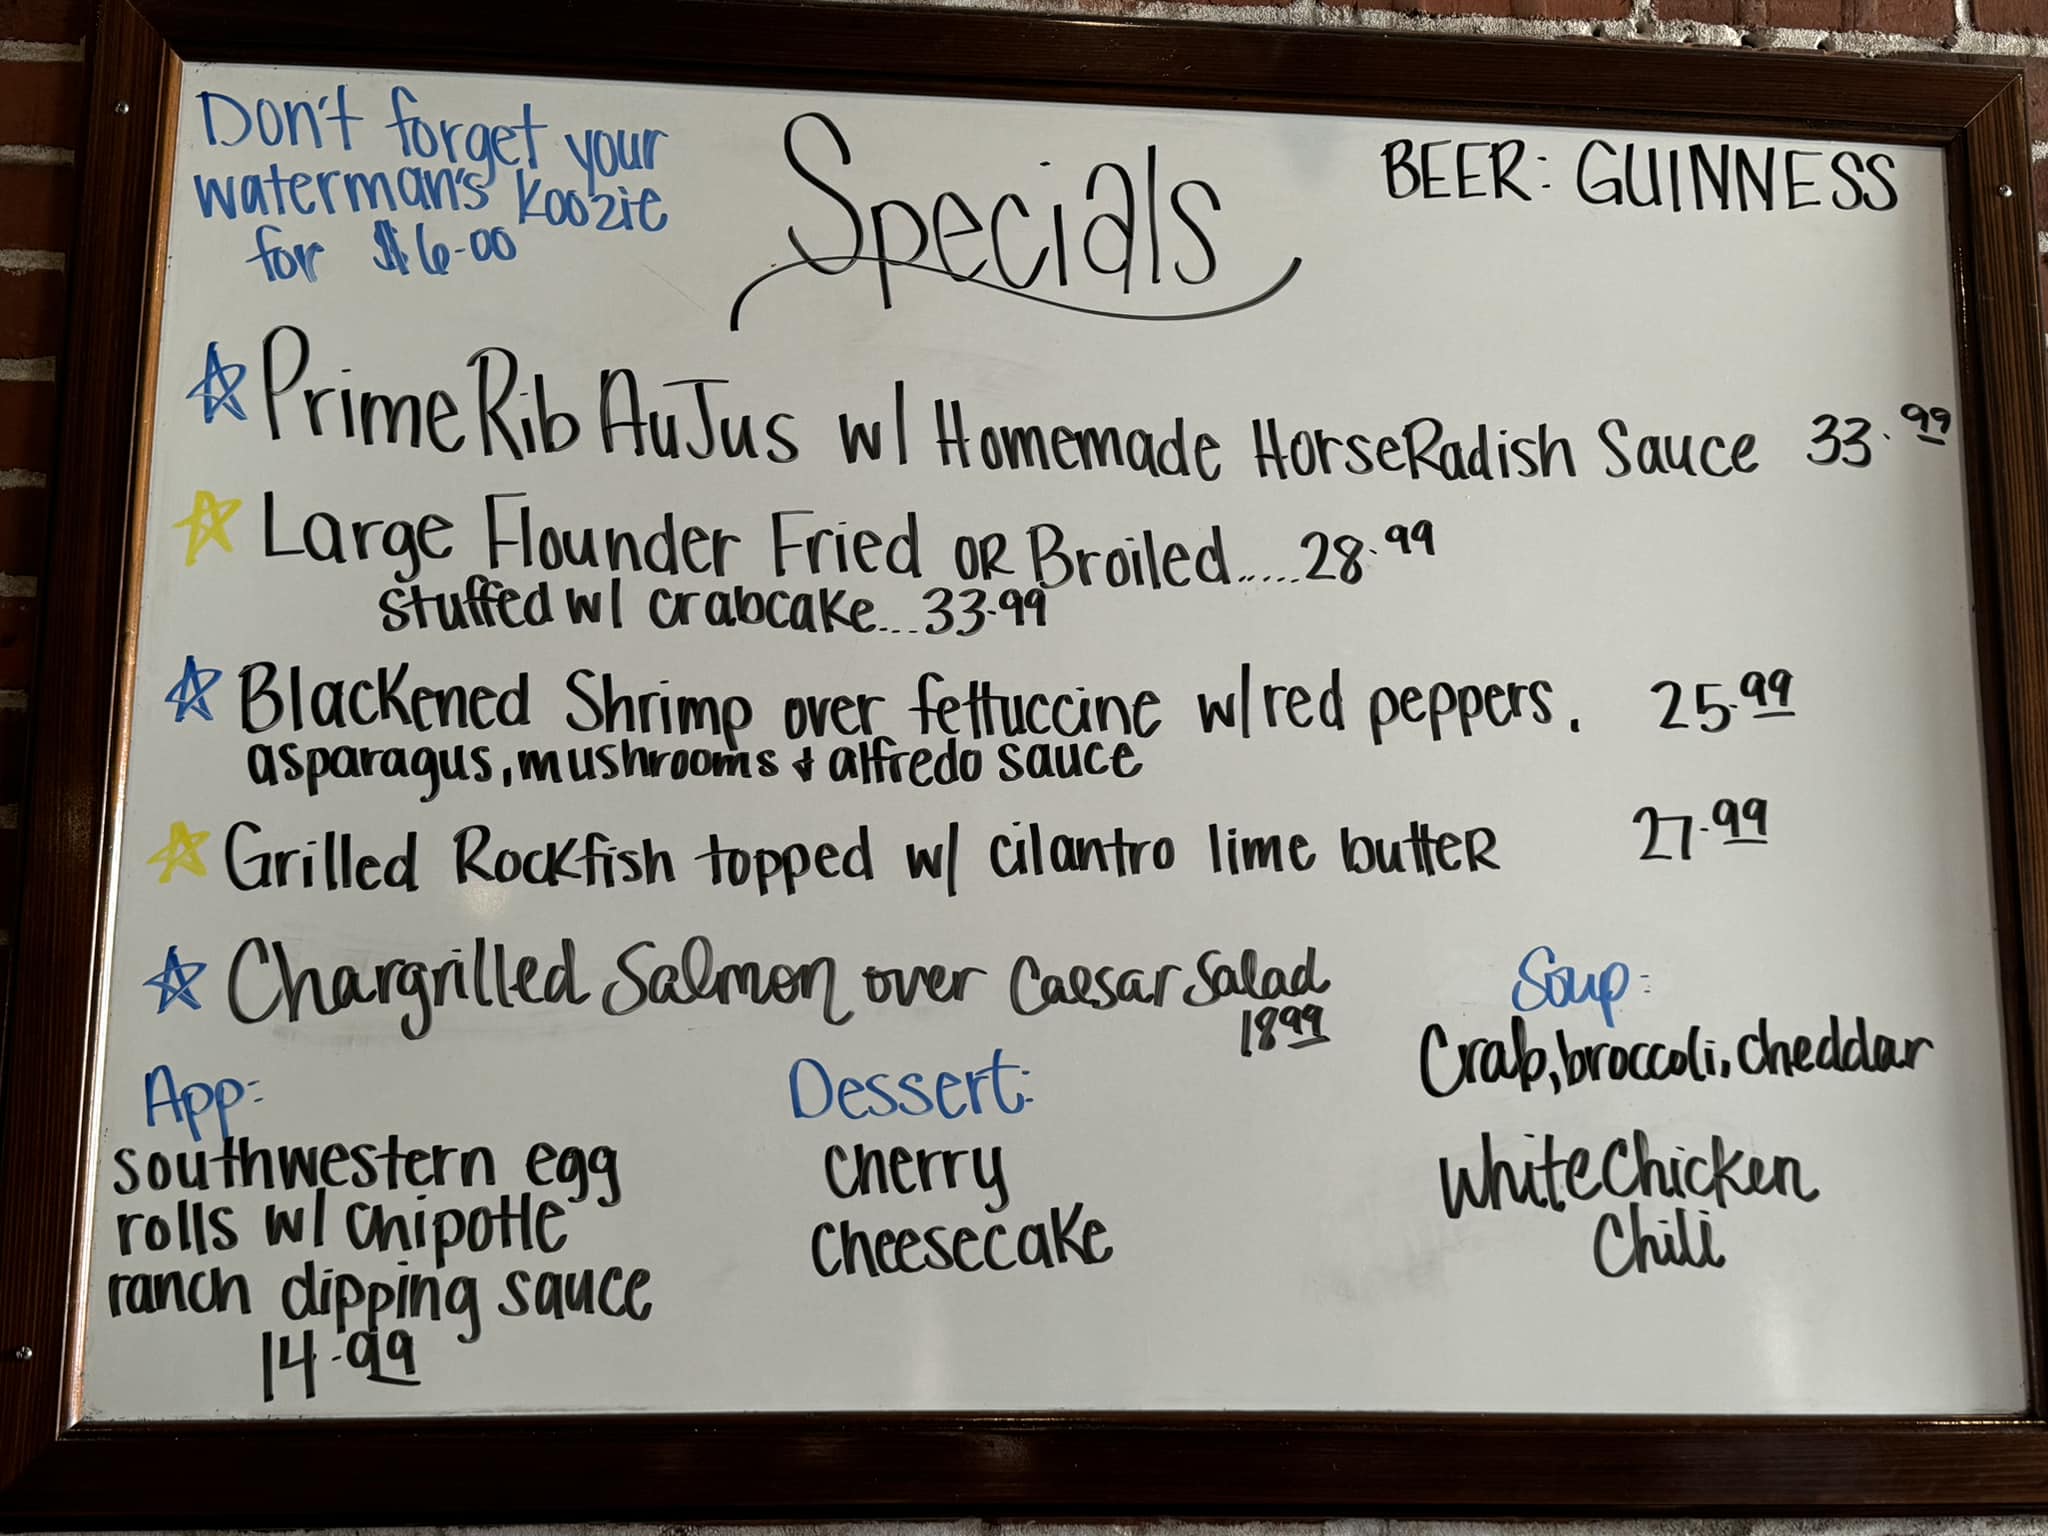 Don't forget your
waterman's koozie
for $6.00
Specials
BEER: GUINNESS
Prime Rib Au Jus w/ Homemade HorseRadish Sauce 33.99
Large Flounder Fried OR Broiled.....28.99
stuffed w/ crabcake...33.99
Blackened Shrimp over fettuccine w/ red peppers, 25.99
asparagus, mushrooms & alfredo sauce
Grilled Rockfish topped w/ cilantro lime butter 27.99
Chargrilled Salmon over Caesar Salad
18.99
App:
southwestern egg
rolls w/ chipotle
ranch dipping sauce
14.99
Dessert:
Cherry
Cheesecake
Soup:
Crab, broccoli, cheddar
White Chicken
Chili